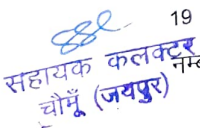 19
सहायक कलक्टर
चौमूँ (जयपुर)